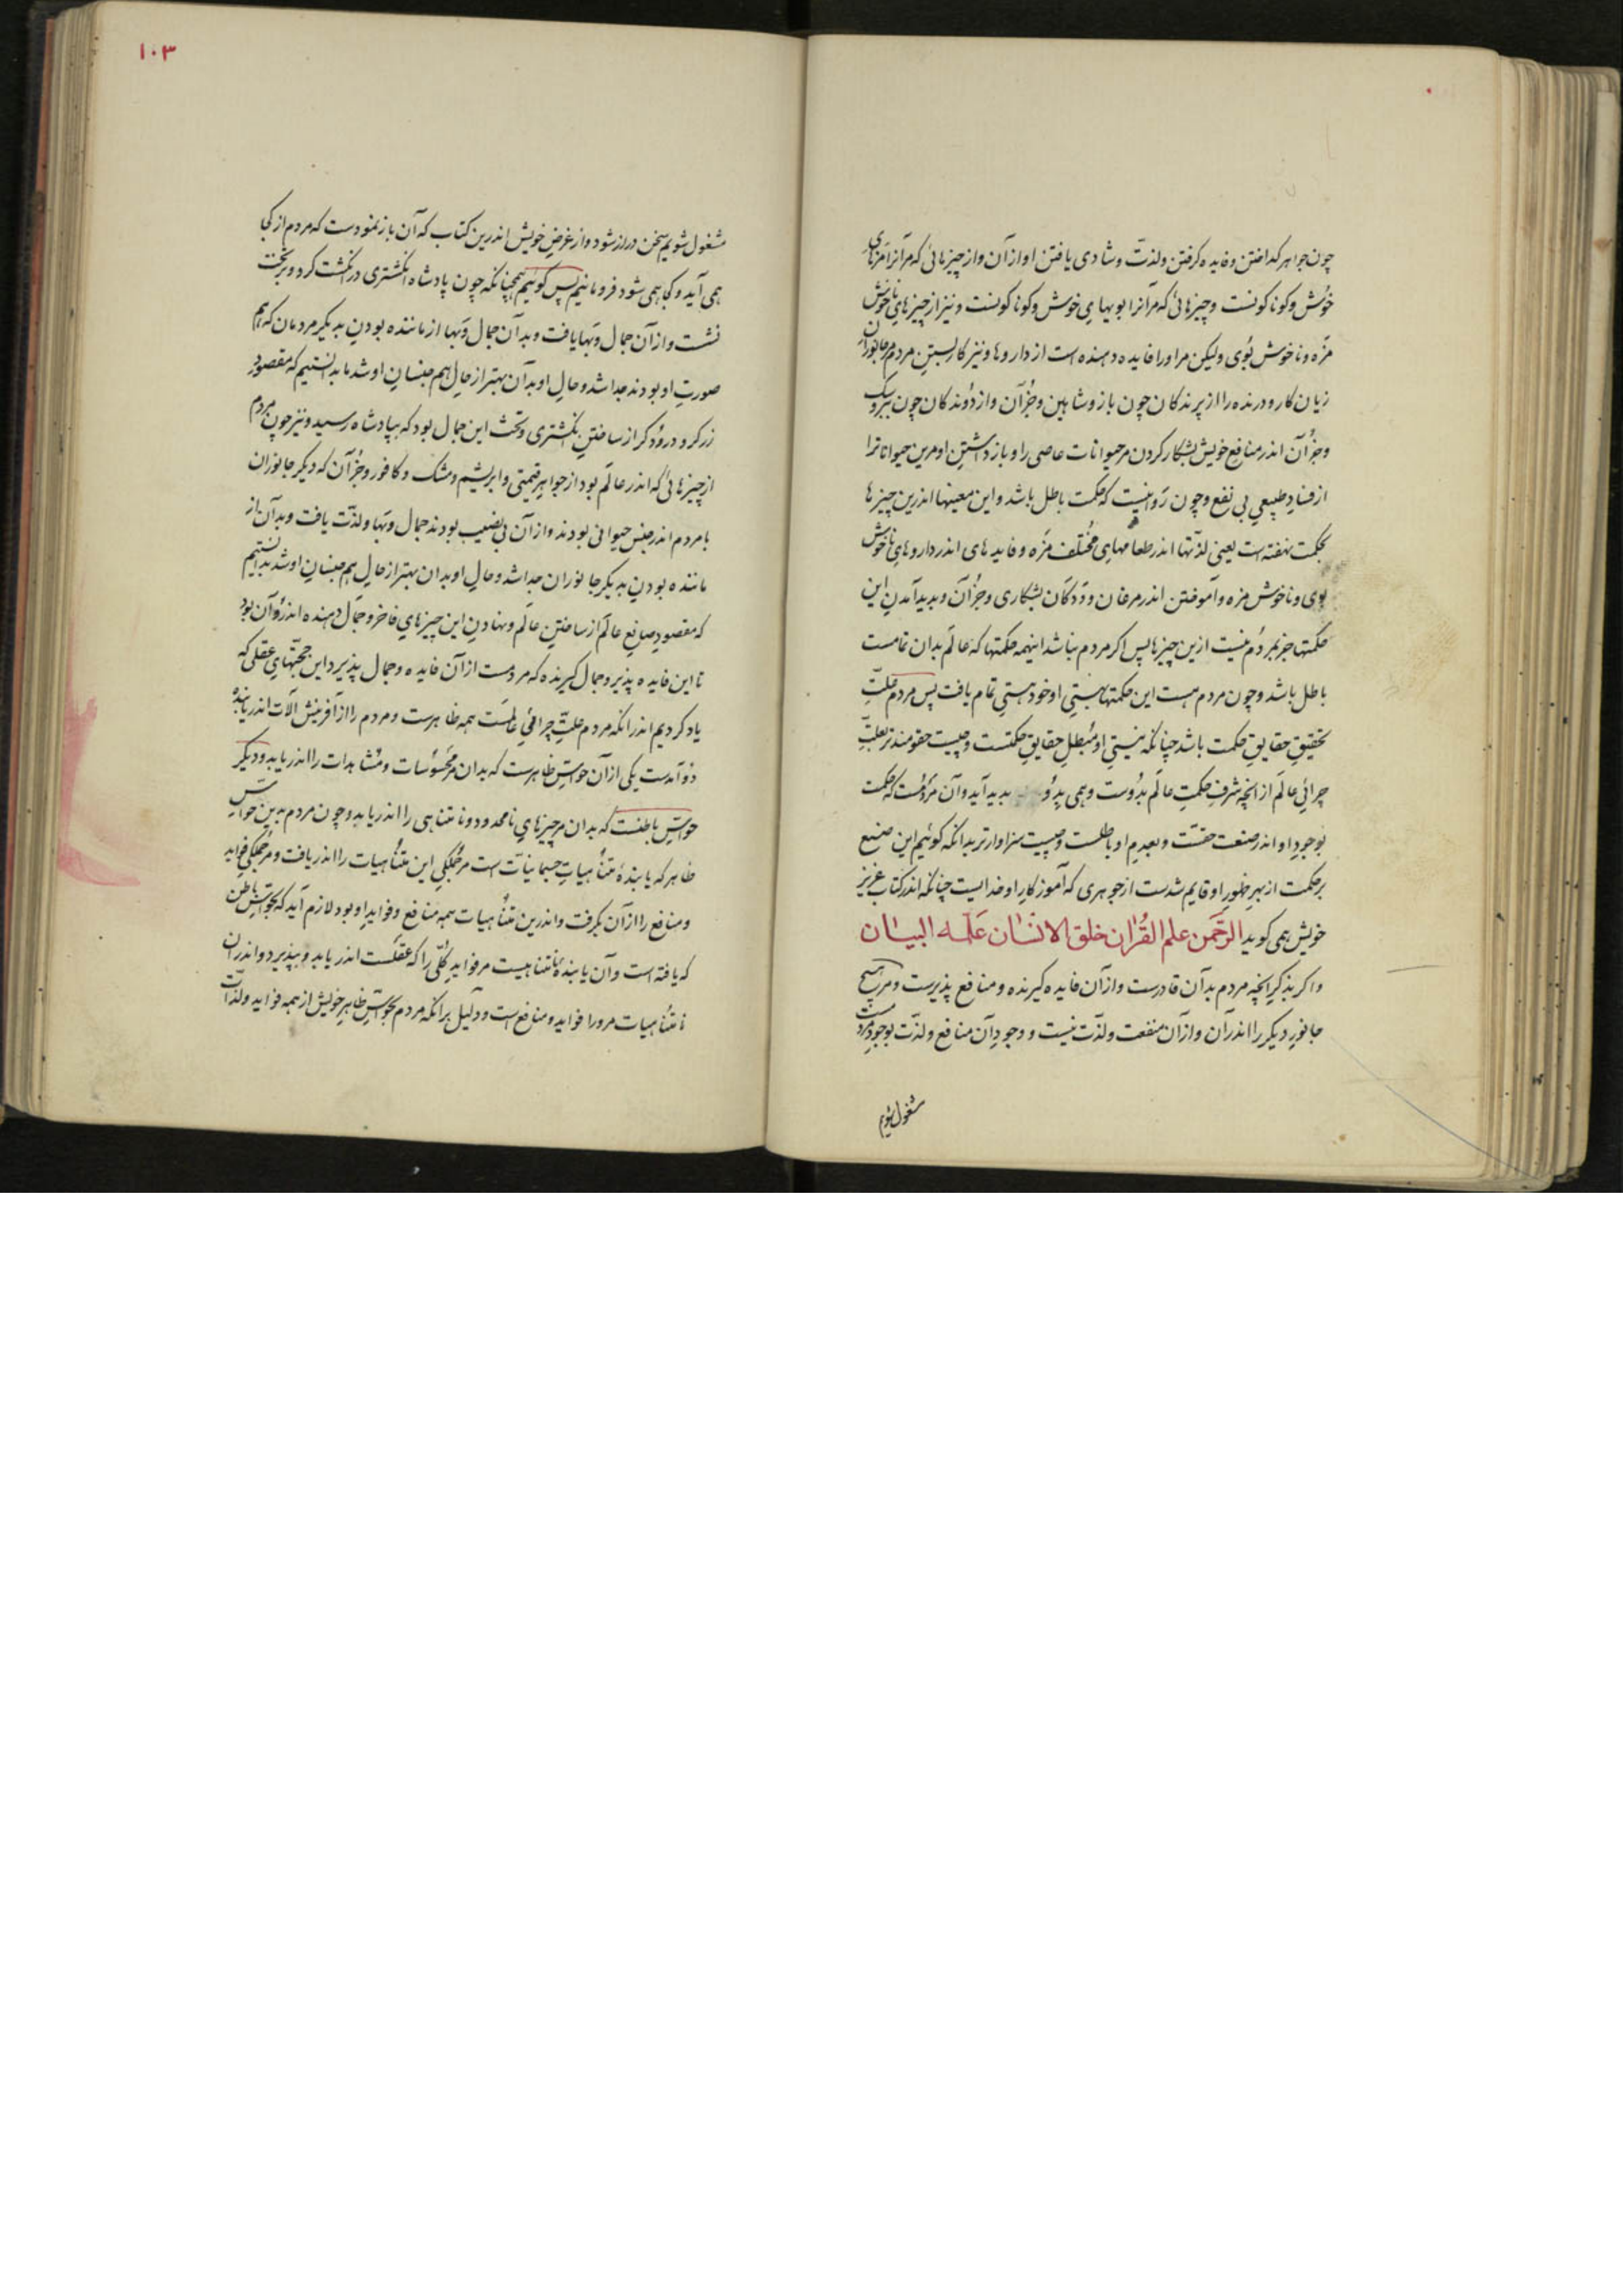 چون جواهر کداختن و فایده کرفتن ولذت و شادی یافتن او از آن و از چیزهائی که مر آنرا مزهای
خوش و کوناکونست و چیزهائی که مر آنرا بویهای خوش و کوناکونست و نیز از چیزهای ناخوش
مزه و ناخوش بوی ولیکن مر او را فایده دهنده است از داروها و نیز کار بستن مردم مر جانوران
زیان کار و درنده را از پرندکان چون باز و شاهین و جز آن و از دوندکان چون یوز و سک
و جز آن اندر منافع خویش بشکار کردن مر حیوانات عاصی را و باز داشتن او مرین حیواناترا
از فساد طبیعی بی نفع و چون روا نیست که حکمت باطل باشد و این معنیها اندرین چیزها
بحکمت نهفته است یعنی لذتها اندر طعامهای مختلف مزه و فایدهای اندر داروهای ناخوش
بوی و ناخوش مزه و آموختن اندر مرغان و ددکان بشکاری و جز آن و پدید آمدن این
حکمتها جز بمردم نیست ازین چیزها پس اکر مردم نباشد اینهمه حکمتها که عالم بدان تمامست
باطل باشد و چون مردم هست این حکمتها بهستی او خود هستی تمام یافت پس مردم علت
تحقیق حقایق حکمت باشد چنانکه نیستی او مبطل حقایق حکمتست و چیست حقومندتر بعلت
چرائی عالم از انچه شرف حکمت عالم بدوست و همی بدو پدید آید و آن مردمست که حکمت
بوجود او اندر صنعت حقست و بعدم او باطلست و چیست سزاوارتر بدانکه کوئیم این صنع
بر حکمت از بهر ظهور او قایم شدست از جوهری که آموزکار او خدایست چنانکه اندر کتاب عزیز
خویش همی کوید الرحمن علم القران خلق الانسان علمه البیان
و اکر بذکر انچه مردم بدآن قادرست و از آن فایده کیرنده و منافع پذیرست و مر هیچ
جانور دیکر را اندر آن و از آن منفعت ولذت نیست و وجود آن منافع ولذت بوجود مردمست
مشغول شویم
۱۰۳
مشغول شویم سخن دراز شود و از غرض خویش اندرین کتاب که آن باز نمودست که مردم از کجا
همی آید و کجا همی شود فرو مانیم پس کوئیم همچنانکه چون پادشاه انکشتری در انکشت کرد و بر تخت
نشست و از آن جمال و بها یافت و بدآن جمال و بها از ماننده بودن بدیکر مردمان که هم
صورت او بودند جدا شد و حال او بدآن بهتر از حال هم جنسان او شد ما بدانستیم که مقصود
زرکر و درودکر از ساختن انکشتری و تخت این جمال بود که بپادشاه رسید و نیز چون مردم
از چیزهائی که اندر عالم بود از جواهر قیمتی و ابریشم و مشک و کافور و جز آن که دیکر جانوران
با مردم اندر جنس حیوانی بودند و از آن بی نصیب بودند جمال و بها ولذت یافت و بدآن از
ماننده بودن بدیکر جانوران جدا شد و حال او بدان بهتر از حال هم جنسان او شد بدانستیم
که مقصود صانع عالم از ساختن عالم و نهادن این چیزهای فاخر و جمال دهنده اندرو آن بود
تا این فایده پذیر و جمال کیرنده که مردمست از آن فایده و جمال پذیرد این حجتهای عقلی که
یاد کردیم اندر انکه مردم علت چرائی عالمست همه ظاهرست و مردم را از آفرینش آلات اندر یابنده
دو آمدست یکی از آن حواس ظاهرست که بدان مر محسوسات و مشاهدات را اندر یابد و دیکر
حواس باطنست که بدان مر چیزهای نامحدود و نامتناهی را اندر یابد و چون مردم بدین حواس
ظاهر که یابندۀ متناهیات جسمانیات است مر جملکی این متناهیات را اندر یافت و مر جملکی فواید
و منافع را از آن بکرفت و اندرین متناهیات همه منافع و فواید او بود لازم آید که بحواس باطن
که یافته است و آن یابندۀ نامتناهیست مر فواید کلی را که عقلست اندر یابد و بپذیرد و اندر ان
نامتناهیات مرورا فواید و منافع است و دلیل برانکه مردم بحواس ظاهر خویش از همه فواید ولذات